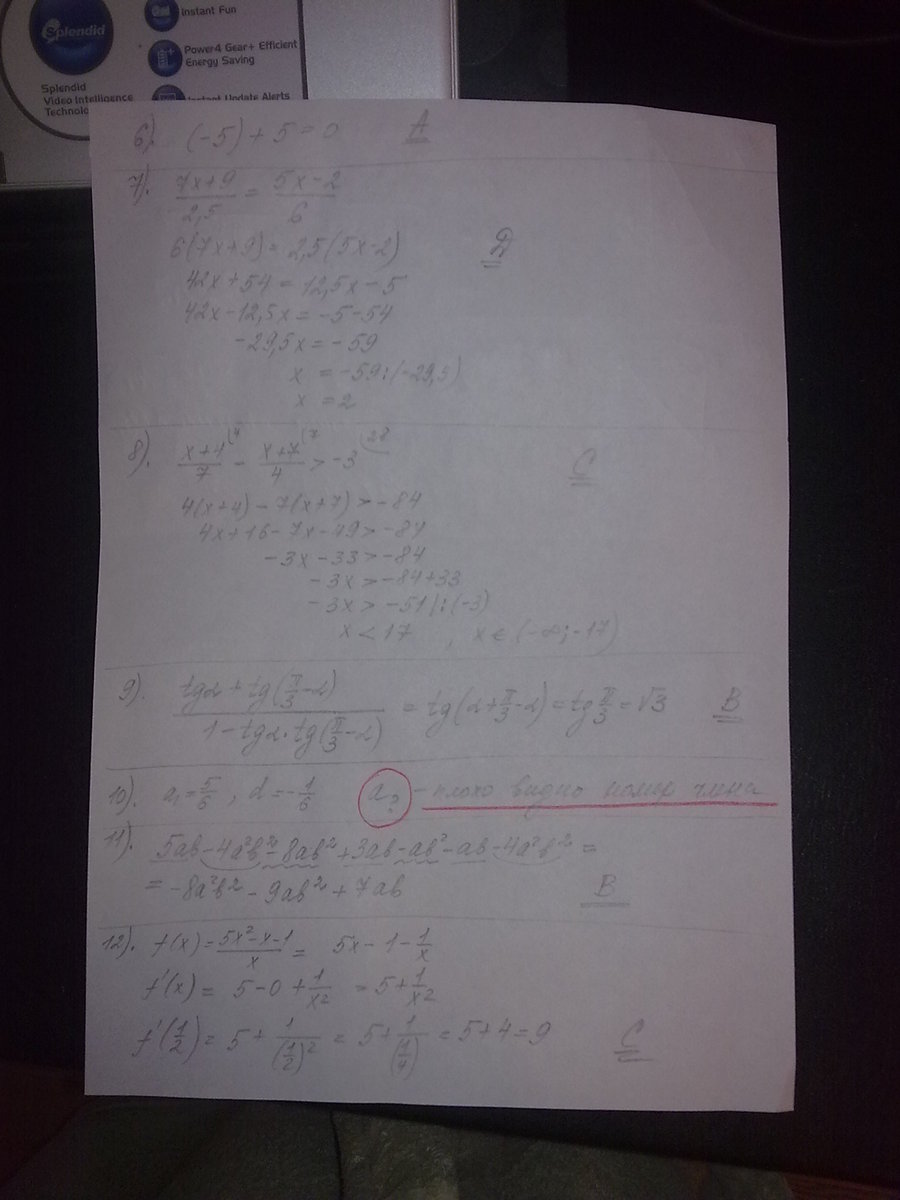 Splendid
Instant Fun
Power4 Gear+ Efficient
Energy Saving
Splendid
Video Intelligence
Instant Update Alerts
6). (-5)+5=0 A
7). (7x+9)/2,5 = (5x-2)/6
6(7x+9)=2,5(5x-2) D
42x+54=12,5x-5
42x-12,5x=-5-54
-29,5x=-59
x =-59:(-29,5)
x =2
8). (x+4)/7 (4 - (x+7)/4 (7 > -3 (28 C
4(x+4)-7(x+7)>-84
4x+16-7x-49>-84
-3x-33>-84
-3x>-84+33
-3x>-51|:(-3)
x<17 , x∈(-∞;-17)
9). (tgα+tg(π/3-α))/(1-tgα·tg(π/3-α)) = tg(α+π/3-α)=tg π/3=√3 B
10). a₁=5/6, d=-1/6 a? - плохо видно номер члена
11). 5ab-4a²b²-8ab²+3ab-ab²-ab-4a²b² =
= -8a²b²-9ab²+7ab B
12). f(x)=(5x²-x-1)/x = 5x-1-1/x
f'(x)= 5-0+1/x² =5+1/x²
f'(1/2)= 5+1/(1/2)² = 5+1/(1/4) =5+4=9 C